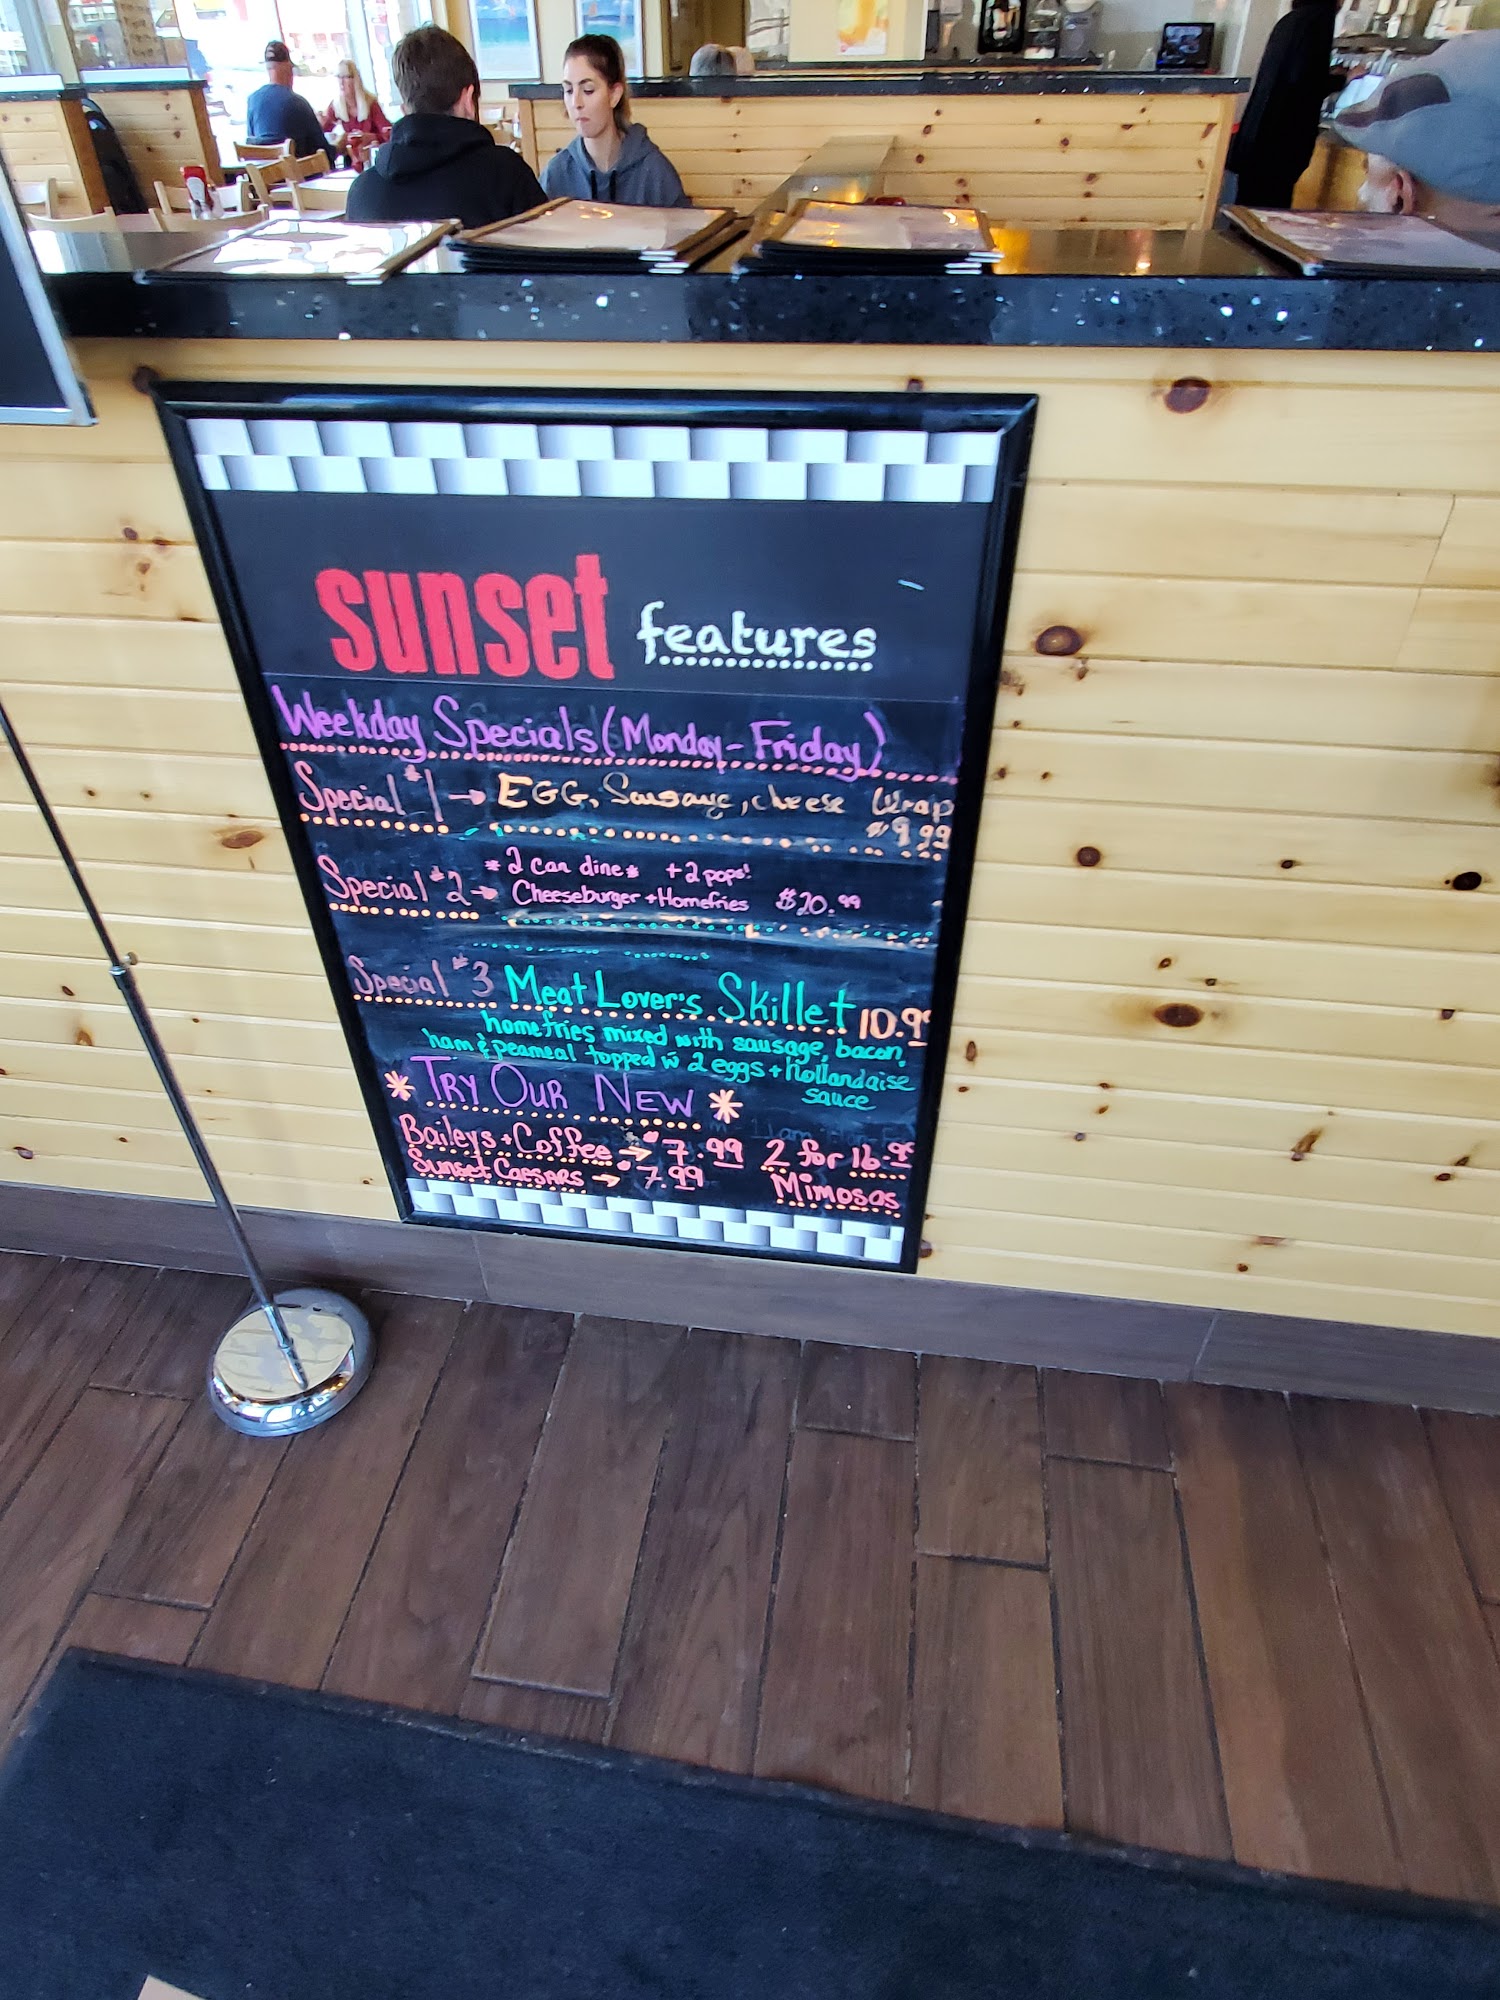 sunset features
Weekday Specials (Monday-Friday)
Special #1 → EGG, Sausage, cheese Wrap
$9.99
*2 can dine* +2 pops!
Special #2 → Cheeseburger + Homefries $20.99
Special #3 Meat Lover's Skillet 10.99
homefries mixed with sausage, bacon,
ham & peameal topped w 2 eggs + hollandaise
sauce
* TRY OUR NEW *
Baileys + Coffee → $7.99 2 for 16.99
Sunset CAESARS → $7.99 Mimosas